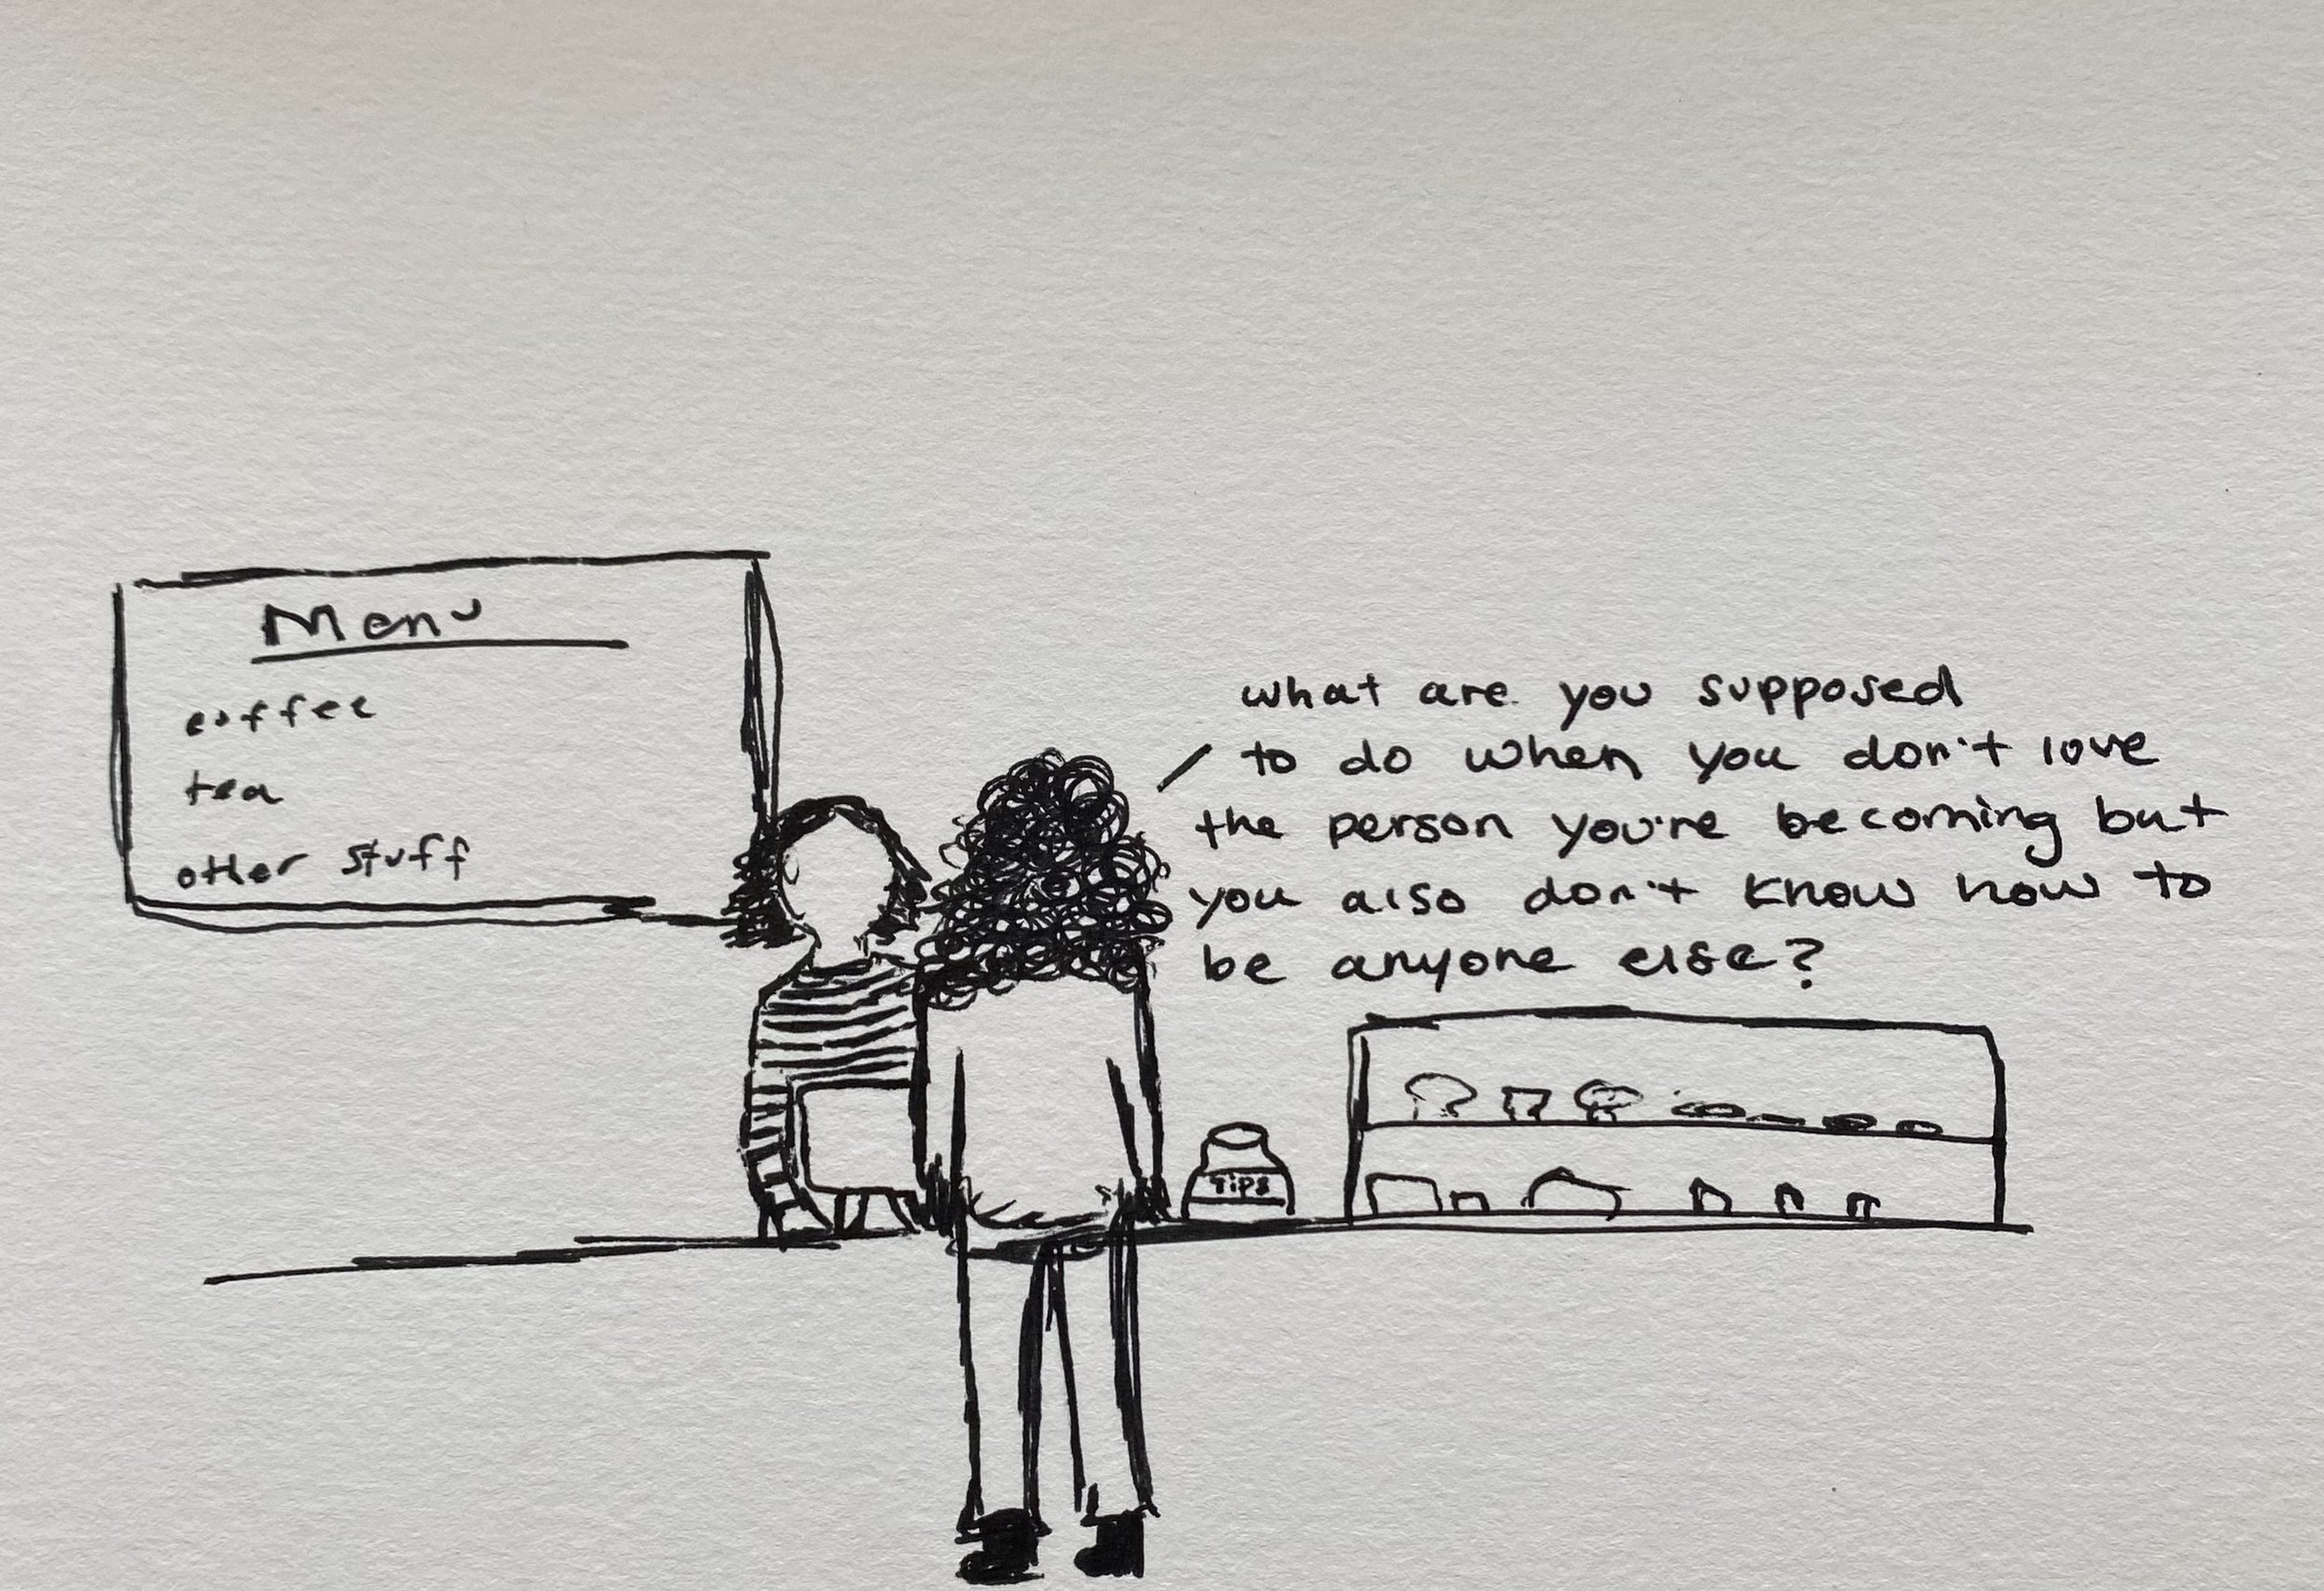 Menu
coffee
tea
other stuff
what are you supposed
to do when you don't love
the person you're becoming but
you also don't know how to
be anyone else?
Tips